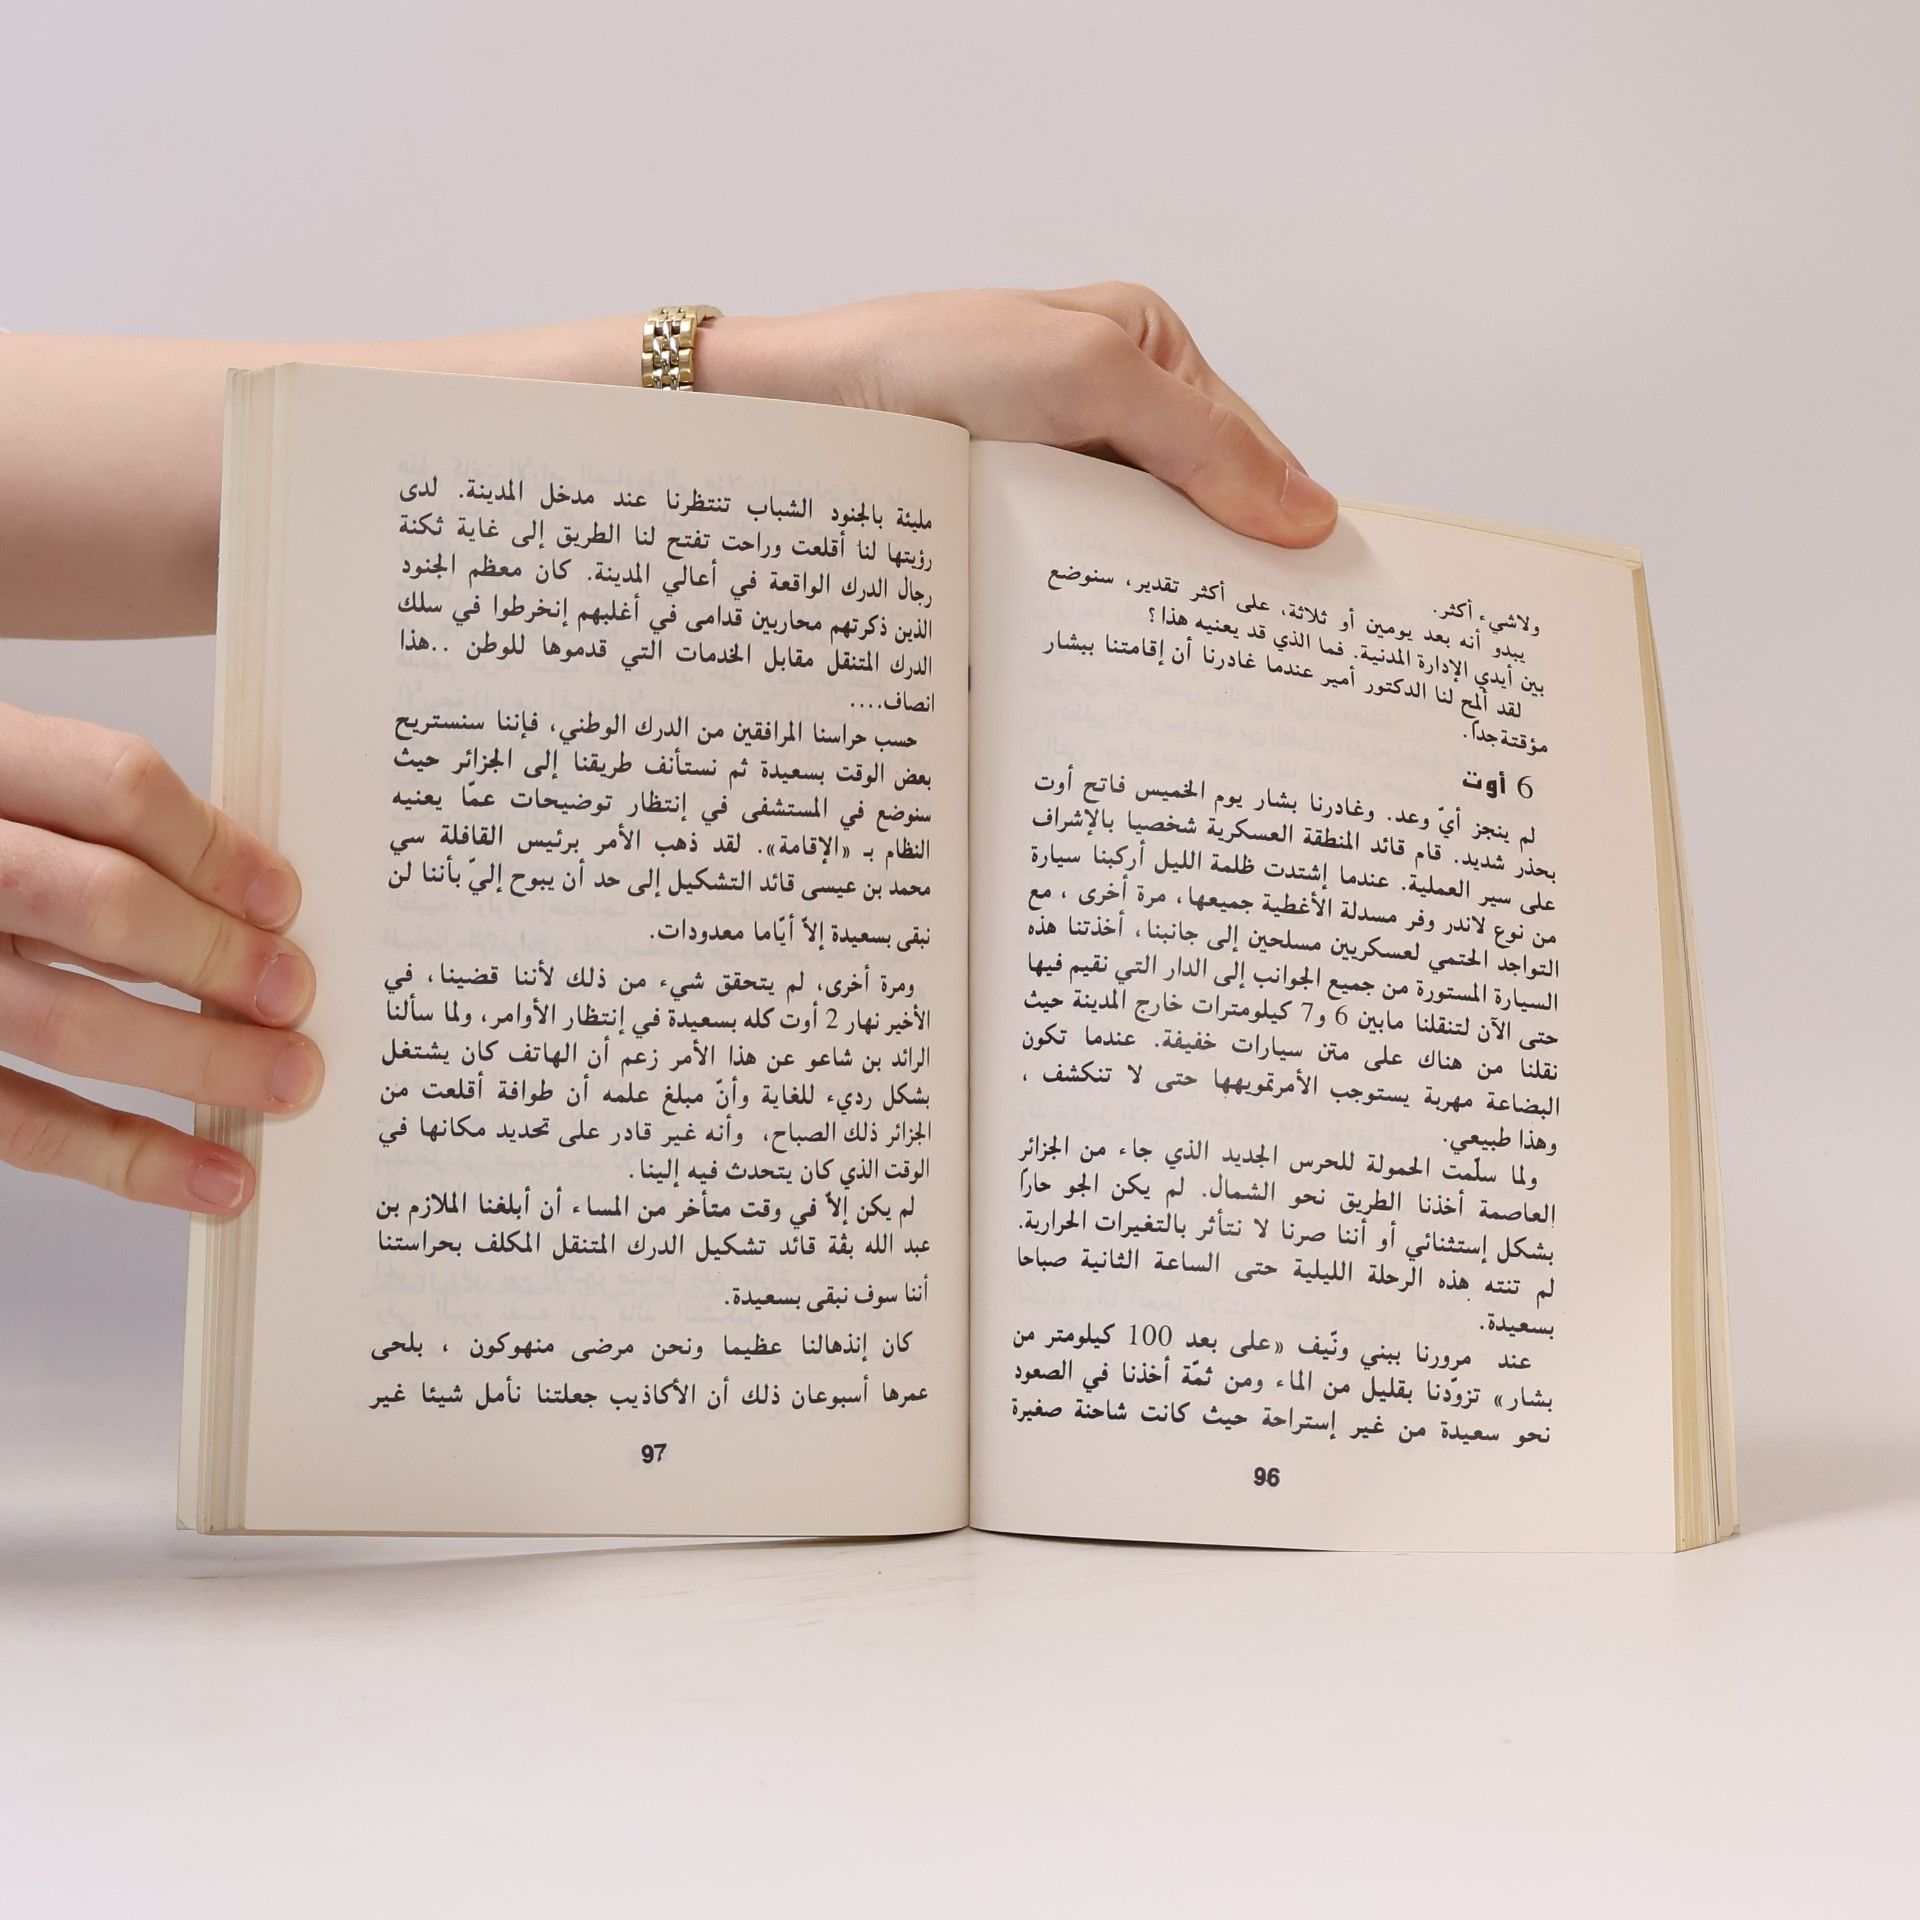 ولاشيء أكثر.
يبدو أنه بعد يومين أو ثلاثة، على أكثر تقدير، سنوضع
بين أيدي الإدارة المدنية. فما الذي قد يعنيه هذا؟
لقد ألمح لنا الدكتور أمير عندما غادرنا أن إقامتنا ببشار
مؤقتة جداً.
6 أوت
لم ينجز أيّ وعد. وغادرنا بشار يوم الخميس فاتح أوت
بحذر شديد. قام قائد المنطقة العسكرية شخصيا بالإشراف
على سير العملية. عندما إشتدت ظلمة الليل أركبنا سيارة
من نوع لاندر وفر مسدلة الأغطية جميعها، مرة أخرى ، مع
التواجد الحتمي لعسكريين مسلحين إلى جانبنا، أخذتنا هذه
السيارة المستورة من جميع الجوانب إلى الدار التي نقيم فيها
حتى الآن لتنقلنا مابين 6 و7 كيلومترات خارج المدينة حيث
نقلنا من هناك على متن سيارات خفيفة. عندما تكون
البضاعة مهربة يستوجب الأمرتمويهها حتى لا تنكشف ،
وهذا طبيعي.
ولما سلّمت الحمولة للحرس الجديد الذي جاء من الجزائر
العاصمة أخذنا الطريق نحو الشمال. لم يكن الجو حارا
بشكل إستثنائي أو أننا صرنا لا نتأثر بالتغيرات الحرارية.
لم تنته هذه الرحلة الليلية حتى الساعة الثانية صباحا
بسعيدة.
عند مرورنا ببني ونّيف «على بعد 100 كيلومتر من
بشار» تزوّدنا بقليل من الماء ومن ثمّة أخذنا في الصعود
نحو سعيدة من غير إستراحة حيث كانت شاحنة صغيرة
96
مليئة بالجنود الشباب تنتظرنا عند مدخل المدينة. لدى
رؤيتها لنا أقلعت وراحت تفتح لنا الطريق إلى غاية ثكنة
رجال الدرك الواقعة في أعالي المدينة. كان معظم الجنود
الذين ذكرتهم محاربين قدامى في أغلبهم إنخرطوا في سلك
الدرك المتنقل مقابل الخدمات التي قدموها للوطن ..هذا
انصاف....
حسب حراسنا المرافقين من الدرك الوطني، فإننا سنستريح
بعض الوقت بسعيدة ثم نستأنف طريقنا إلى الجزائر حيث
سنوضع في المستشفى في إنتظار توضيحات عمّا يعنيه
النظام بـ «الإقامة». لقد ذهب الأمر برئيس القافلة سي
محمد بن عيسى قائد التشكيل إلى حد أن يبوح إليّ بأننا لن
نبقى بسعيدة إلاّ أيّاما معدودات.
ومرة أخرى، لم يتحقق شيء من ذلك لأننا قضينا، في
الأخير نهار 2 أوت كله بسعيدة في إنتظار الأوامر، ولما سألنا
الرائد بن شاعو عن هذا الأمر زعم أن الهاتف كان يشتغل
بشكل رديء للغاية وأنّ مبلغ علمه أن طوافة أقلعت من
الجزائر ذلك الصباح، وأنه غير قادر على تحديد مكانها في
الوقت الذي كان يتحدث فيه إلينا.
لم يكن إلاّ في وقت متأخر من المساء أن أبلغنا الملازم بن
عبد الله بڤة قائد تشكيل الدرك المتنقل المكلف بحراستنا
أننا سوف نبقى بسعيدة.
كان إنذهالنا عظيما ونحن مرضى منهوكون ، بلحى
عمرها أسبوعان ذلك أن الأكاذيب جعلتنا نأمل شيئا غير
97